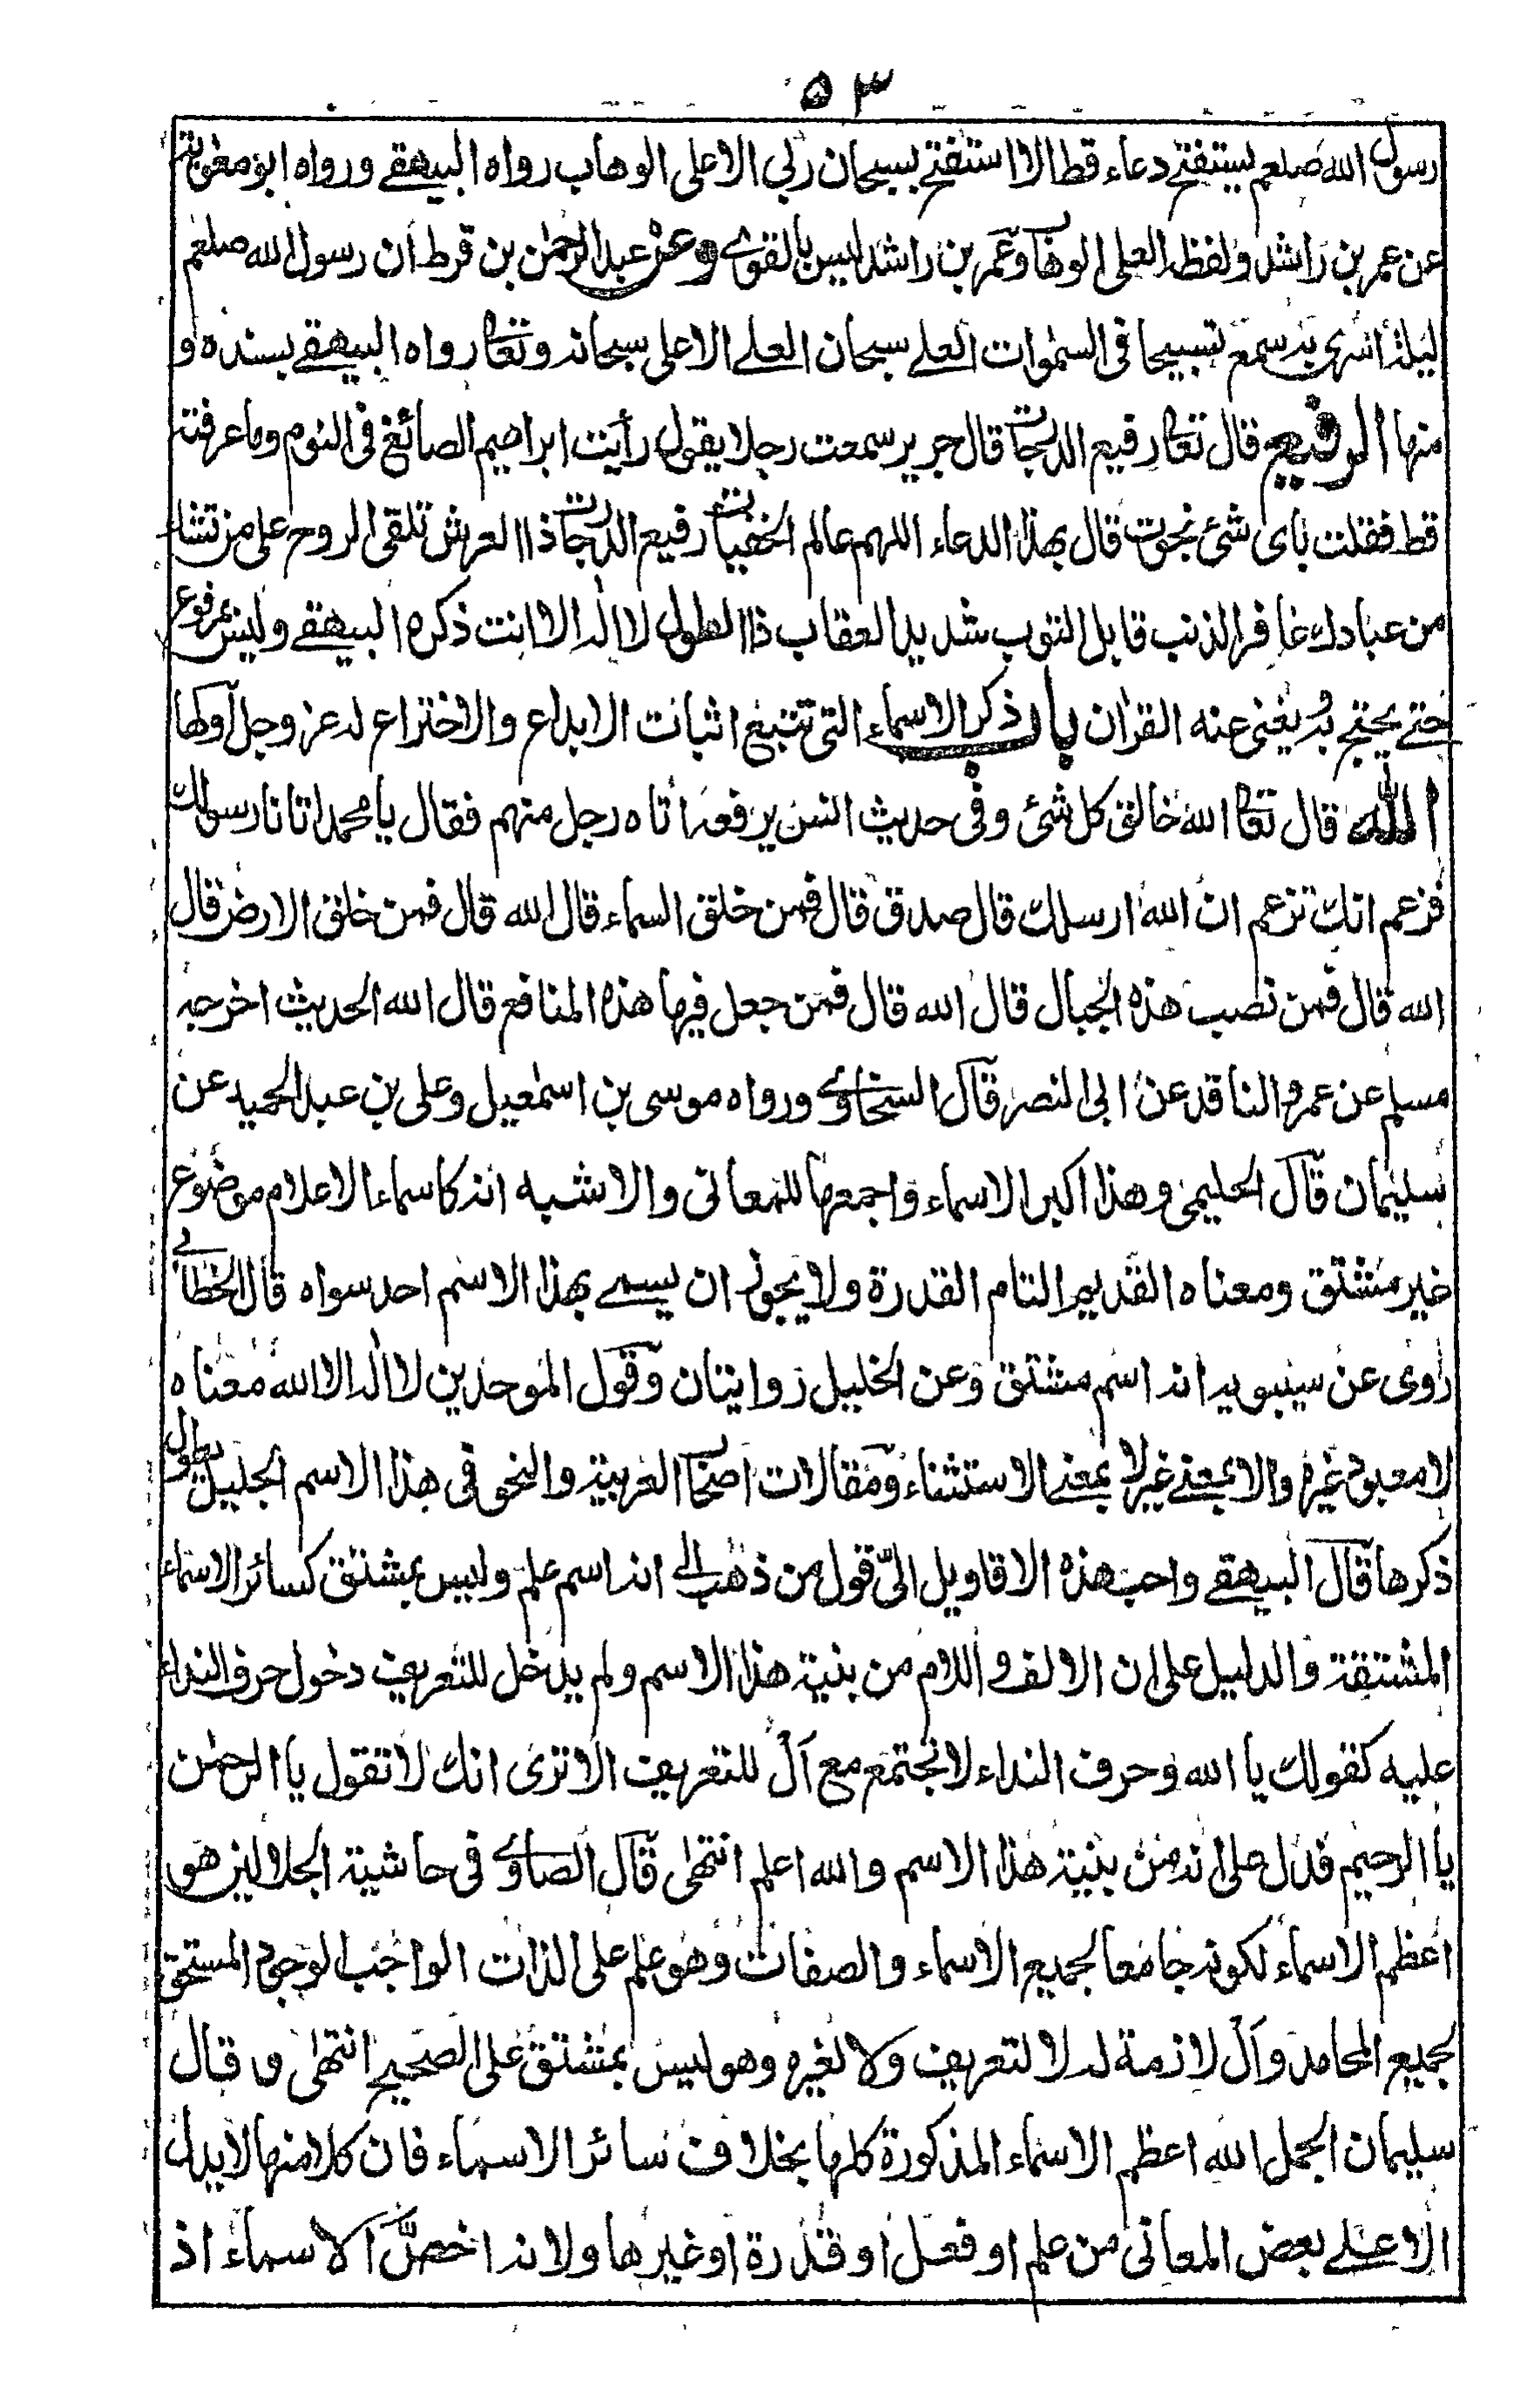 ٥٣
رسول الله صلعم يستفتح دعاء قط الا استفتح بسبحان ربي الاعلى الوهاب رواه البيهقے ورواه ابو معوية
عن عمر بن راشد ولفظه العلى الوهاب وعمر بن راشد ليس بالقوے وعن عبد الرحمٰن بن قرط ان رسول الله صلعم
ليلة اسرى به سمع تسبيحا فى السمٰوات العلے سبحان العلے الاعلى سبحانه وتعا رواه البيهقے بسنده و
منها الرفيع قال تعا رفيع الدرجات قال جرير سمعت رجلا يقول رأيت ابراهيم الصائغ فى النوم وما عرفته
قط فقلت باى شئ نجوت قال بهذا الدعاء اللهم عالم الخفيات رفيع الدرجات ذا العرش تلقى الروح على من تشاء
من عبادك غافر الذنب قابل التوب شديد العقاب ذا الطول لا اله الا انت ذكره البيهقے وليس بمرفوع
حتے يحتج به يغنى عنه القران باب ذكر الاسماء التى تتبع اثبات الابداع والاختراع له عز وجل آولها
الله قال تعا الله خالق كل شئ وفى حديث انس يرفعه اتاه رجل منهم فقال يا محمد اتانا رسولك
فزعم انك تزعم ان الله ارسلك قال صدق قال فمن خلق السماء قال الله قال فمن خلق الارض قال
الله قال فمن نصب هذه الجبال قال الله قال فمن جعل فيها هذه المنافع قال الله الحديث اخرجه
مسلم عن عمرو الناقد عن ابى النصر قال السخاوے ورواه موسى بن اسمٰعيل وعلى بن عبد الحميد عن
سليمان قال الحليمى وهذا اكبر الاسماء واجمعها للمعانى والاشبه انه كاسماء الاعلام موضوع
غير مشتق ومعناه القديم التام القدرة ولا يجوز ان يسمے بهذا الاسم احد سواه قال الخطابے
روى عن سيبويه انه اسم مشتق وعن الخليل روايتان وقول الموحدين لا اله الا الله معناه
لا معبود غيره والا بمعنے غير لا بمعنے الاستثناء ومقالات اصحاب العربية والنحو فى هذا الاسم الجليل يطول
ذكرها قال البيهقے واحب هذه الاقاويل الىّ قول من ذهب الى انه اسم علم وليس بمشتق كسائر الاسماء
المشتقة والدليل على ان الالف واللام من بنية هذا الاسم ولم يدخل للتعريف دخول حرف النداء
عليه كقولك يا الله وحرف النداء لا تجتمع مع آل للتعريف الا ترى انك لا تقول يا الرحمٰن
يا الرحيم فدل على انه من بنية هذا الاسم والله اعلم انتهى قال الصاوے فى حاشية الجلالين هو
اعظم الاسماء لكونه جامعا لجميع الاسماء والصفات وهو علم على الذات الواجب الوجود المستحق
لجميع المحامد وآل لازمة له لا لتعريف ولا لغيره وهو ليس بمشتق على الصحيح انتهى وقال
سليمان الجمل الله اعظم الاسماء المذكورة كلها بخلاف سائر الاسماء فان كلا منها لا يدل
الا علے بعض المعانى من علم او فعل او قدرة او غيرها ولانه اخص الاسماء اذ